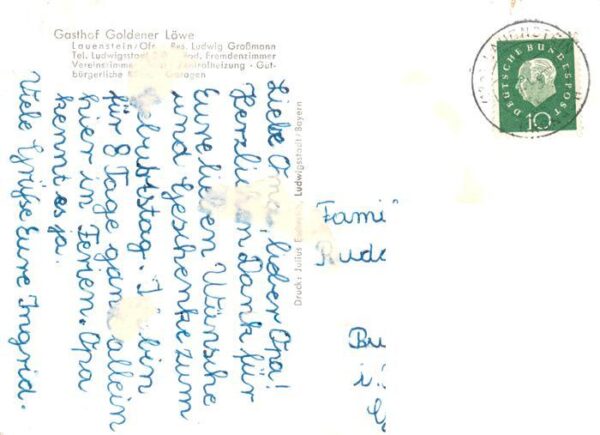 Gasthof Goldener Löwe
Lauenstein/Ofr. Bes. Ludwig Graßmann
Tel. Ludwigsstadt Bad, Fremdenzimmer
Vereinszimmer Zentralheizung - Gut-
bürgerliche Garagen
DEUTSCHE BUNDESPOST
10
LAUENSTEIN
Liebe Oma, lieber Opa!
Herzlichen Dank für
Eure lieben Wünsche
und Geschenke zum
Geburtstag. Ich bin
für 8 Tage ganz allein
hier in Ferien. Opa
kennt es ja.
Viele Grüße Eure Ingrid.
Druck: Julius Ludwigsstadt/Bayern
Fami
Rude
Bu
i